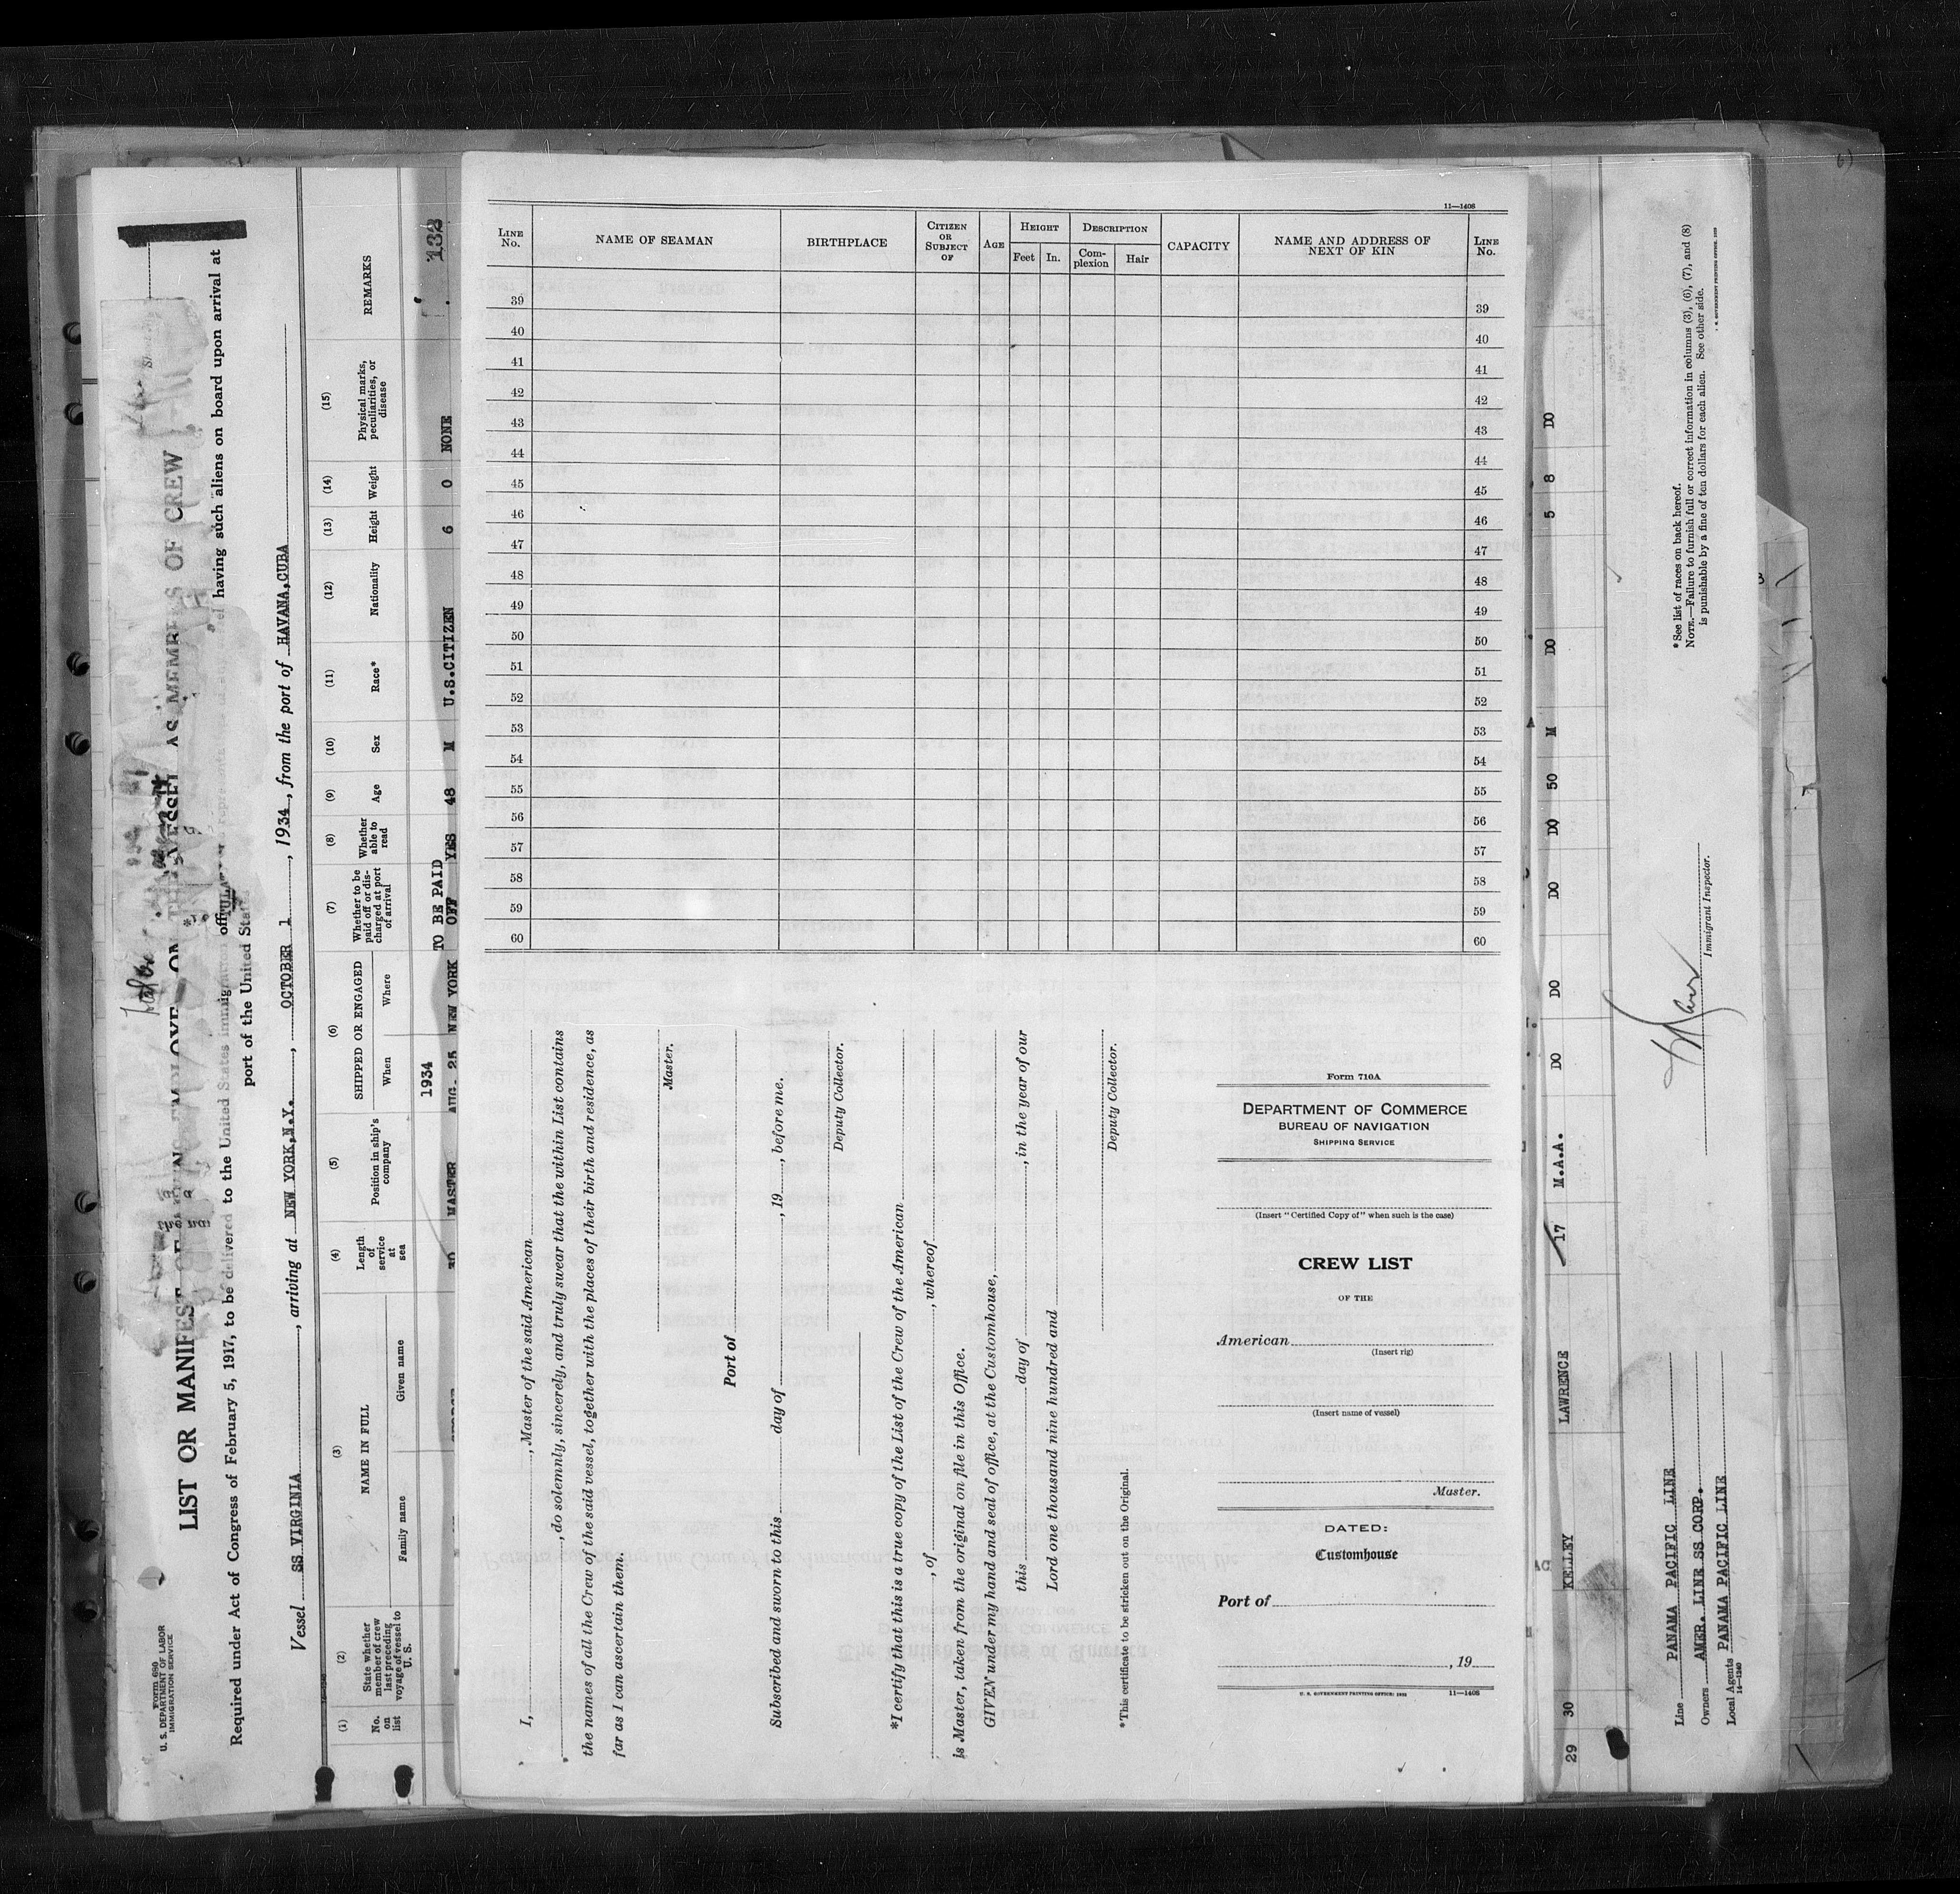 Form 680
U. S. DEPARTMENT OF LABOR
IMMIGRATION SERVICE
LIST OR MANIFEST OF AS MEMBERS OF CREW
Required under Act of Congress of February 5, 1917, to be delivered to the United States immigration having such aliens on board upon arrival at
port of the United States
Vessel SS VIRGINIA, arriving at NEW YORK,N.Y., OCTOBER 1, 1934, from the port of HAVANA,CUBA
(1) No. on list
(2) State whether member of crew last preceding voyage of vessel to U. S.
(3) NAME IN FULL
Family name Given name
(4) Length of service at sea
(5) Position in ship's company
(6) SHIPPED OR ENGAGED
When Where
(7) Whether to be paid off or discharged at port of arrival
(8) Whether able to read
(9) Age
(10) Sex
(11) Race*
(12) Nationality
(13) Height
(14) Weight
(15) Physical marks, peculiarities, or disease
REMARKS
132
1934 TO BE PAID
MASTER AUG. 25 NEW YORK OFF YES 48 M U.S.CITIZEN 6 0 NONE
11—1408
LINE No. NAME OF SEAMAN BIRTHPLACE CITIZEN OR SUBJECT OF AGE HEIGHT DESCRIPTION CAPACITY NAME AND ADDRESS OF NEXT OF KIN LINE No.
Feet In. Complexion Hair
39 39
40 40
41 41
42 42
43 43
44 44
45 45
46 46
47 47
48 48
49 49
50 50
51 51
52 52
53 53
54 54
55 55
56 56
57 57
58 58
59 59
60 60
I, , Master of the said American
, do solemnly, sincerely, and truly swear that the within List contains
the names of all the Crew of the said vessel, together with the places of their birth and residence, as
far as I can ascertain them.
Master.
Port of
Subscribed and sworn to this day of , 19 , before me.
Deputy Collector.
*I certify that this is a true copy of the List of the Crew of the American
, of , whereof
is Master, taken from the original on file in this Office.
GIVEN under my hand and seal of office, at the Customhouse,
this day of , in the year of our
Lord one thousand nine hundred and
Deputy Collector.
*This certificate to be stricken out on the Original.
Form 710A
DEPARTMENT OF COMMERCE
BUREAU OF NAVIGATION
SHIPPING SERVICE
(Insert "Certified Copy of" when such is the case)
CREW LIST
OF THE
American
(Insert rig)
(Insert name of vessel)
Master.
DATED:
Customhouse
Port of
, 19
U. S. GOVERNMENT PRINTING OFFICE: 11—1408
29 30 KELLEY LAWRENCE 17 M.A.A. DO DO DO DO 50 M DO 5 8 DO
Line PANAMA PACIFIC LINE
Owners AMER. LINE SS CORP.
Local Agents PANAMA PACIFIC LINE
14—1240
Immigrant Inspector.
*See list of races on back hereof.
NOTE.—Failure to furnish full or correct information in columns (3), (6), (7), and (8)
is punishable by a fine of ten dollars for each alien. See other side.